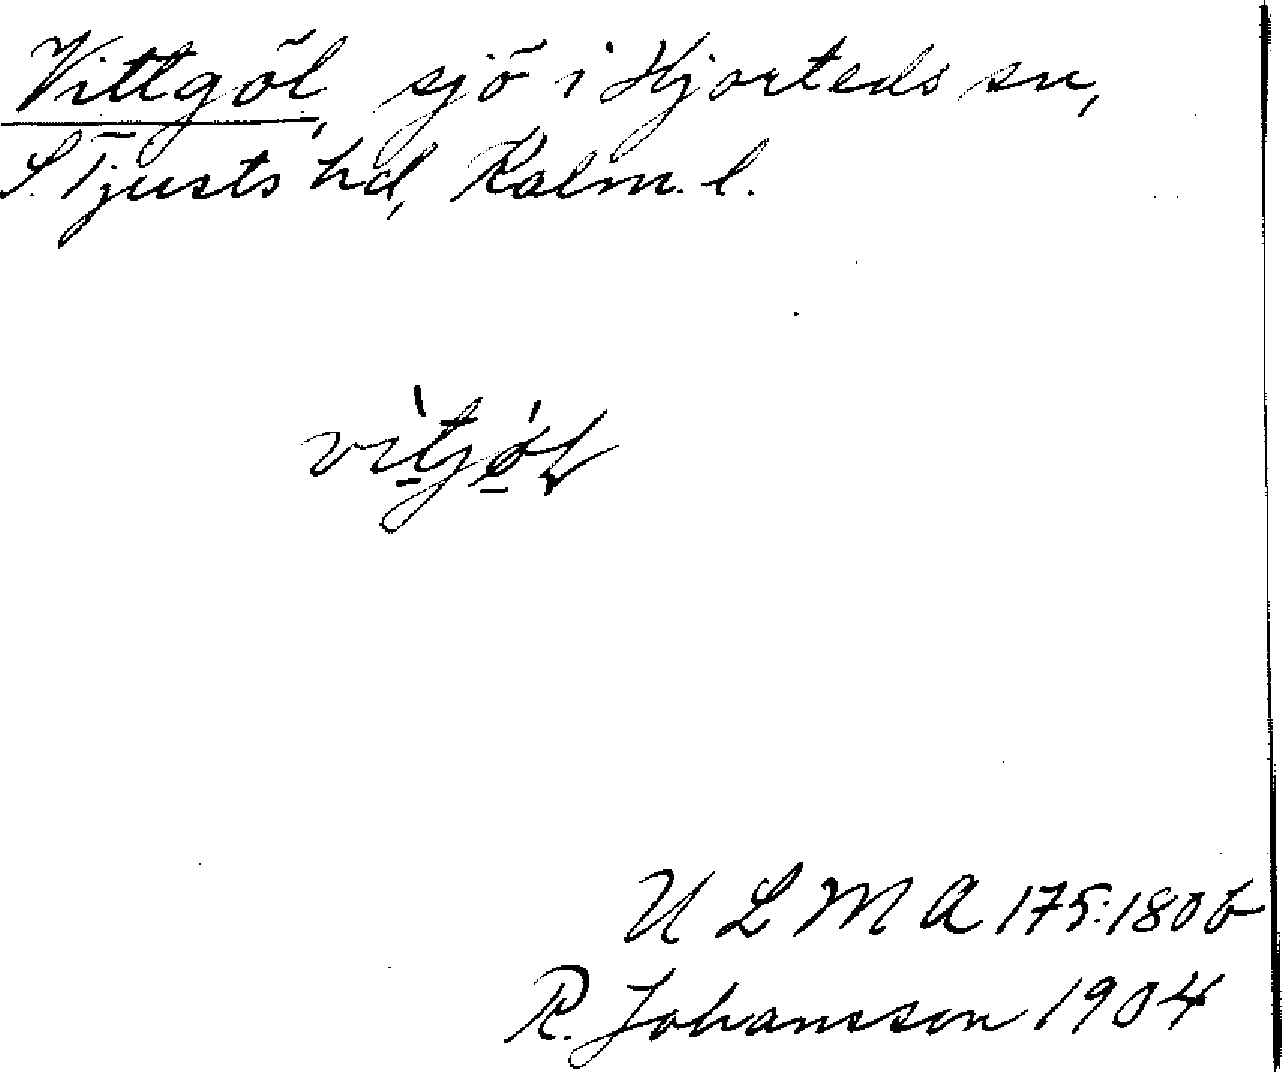 Vittgöl, sjö i Hjorteds sn,
S. Tjusts hd, Kalm. l.
U L M A 175:180 b
R. Johansson 1904